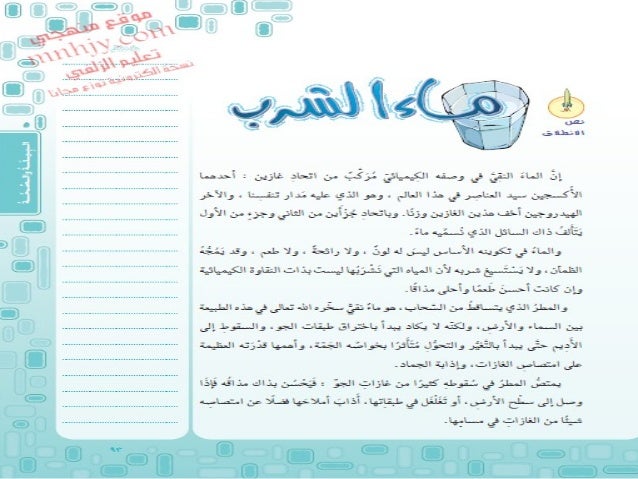 موقع منهجي
mnhjy.com
تعليم الزلفي
نسخة الكترونية توزع مجانا
ماء الشرب
نص
الانطلاق
البيئة والصحة
إنَّ الماءَ النقيَّ في وصفه الكيميائيّ مُرَكّبٌ من اتحادِ غازين : أحدهما
الأكسجين سيد العناصر في هذا العالم ، وهو الذي عليه مَدار تنفسِنا ، والآخر
الهيدروجين أخف هذين الغازين وزنًا. وباتحادِ جُزْأَين من الثاني وجزءٍ من الأول
يَتَألفُ ذاك السائل الذي نُسمّيه ماءً.
والماءُ في تكوينه الأساس ليسَ له لونٌ ، ولا رائحةٌ ، ولا طعم ، وقد يَمُجُّهُ
الظمآن ، ولا يَسْتَسيغ شربه لأن المياه التي نَشْرَبُها ليست بذات النقاوة الكيميائية
وإن كانت أحسنَ طَعمًا وأحلى مذاقًا.
والمطرُ الذي يتساقطُ من السّحاب، هو ماءٌ نقيٌّ سخّره الله تعالى في هذه الطبيعة
بين السماء والأرض، ولكنّه لا يكاد يبدأ باختراق طبقات الجو ، والسقوطِ إلى
الأديم حتّى يبدأ بالتّغيُّر والتحوُّل مُتَأثرًا بخواصّه الجَمّة، وأهمها قدْرَته العظيمة
على امتصاصِ الغازات، وإذابة الجماد.
يمتصُّ المطرُ في سُقوطهِ كثيرًا من غازاتِ الجوّ ؛ فَيَحْسُن بذاك مذاقُه فَإذَا
وصل إلى سطْحِ الأرضِ ، أو تَغَلْغَل في طبقاتِها ، أَذابَ أملاحَها فضلًا عن امتصاصِه
شيئًا من الغازات في مسامِها.
٩٣